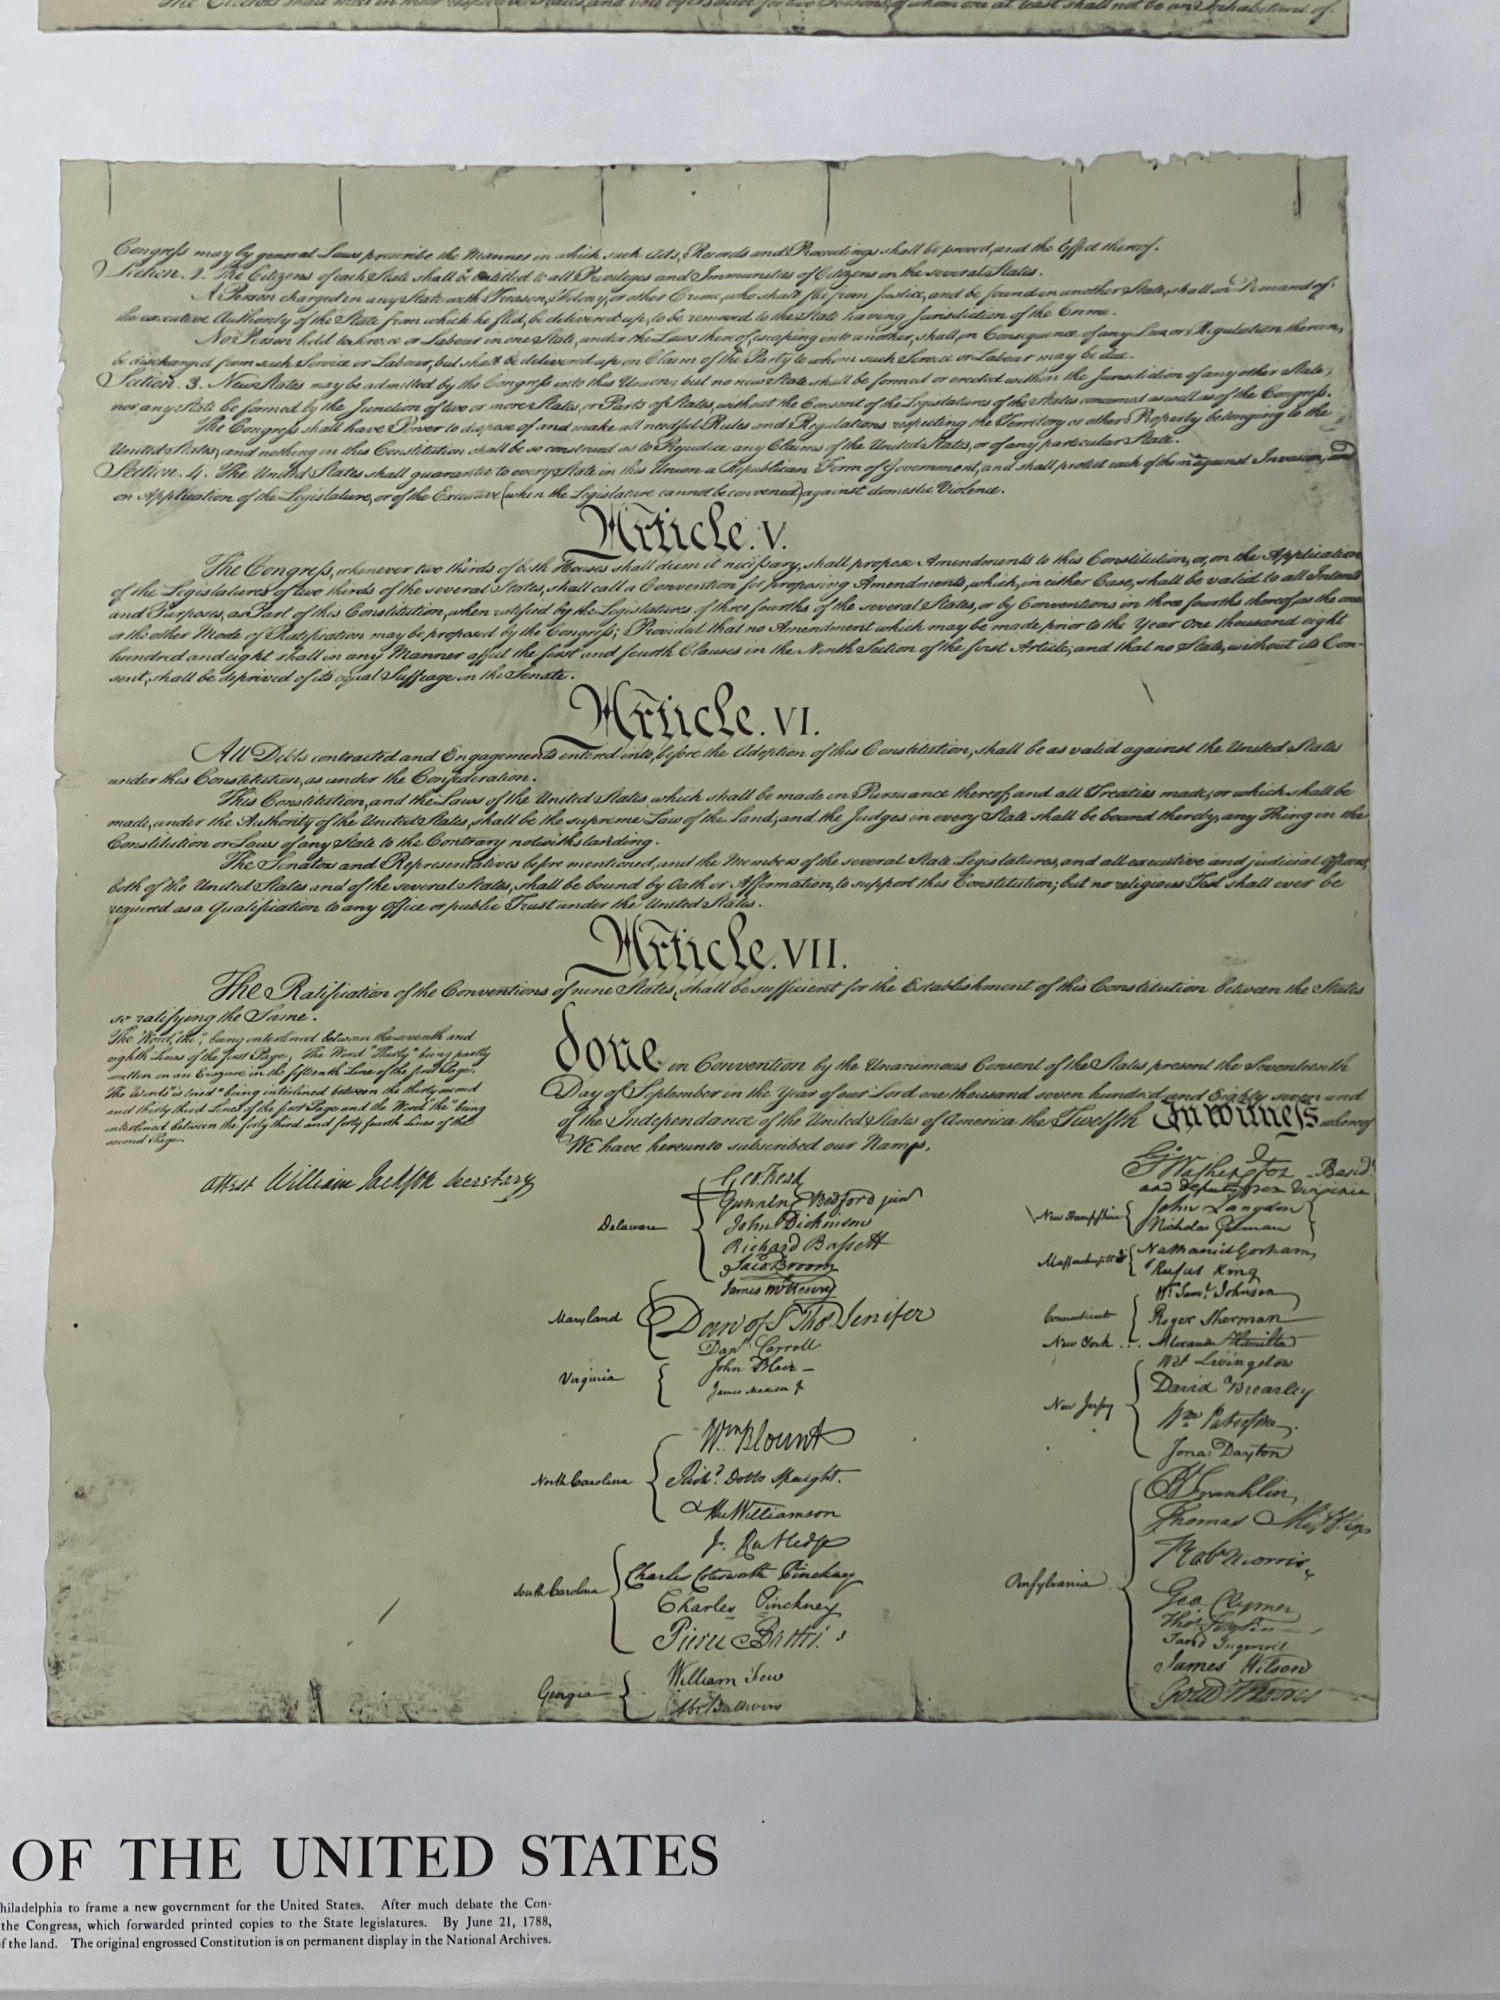 The Electors shall meet in their respective States, and vote by Ballot for two Persons, of whom one at least shall not be an Inhabitant of
Congress may by general Laws prescribe the Manner in which such Acts, Records and Proceedings shall be proved, and the Effect thereof.
Section. 2. The Citizens of each State shall be entitled to all Privileges and Immunities of Citizens in the several States.
A Person charged in any State with Treason, Felony, or other Crime, who shall flee from Justice, and be found in another State, shall on Demand of
the executive Authority of the State from which he fled, be delivered up, to be removed to the State having Jurisdiction of the Crime.
No Person held to Service or Labour in one State, under the Laws thereof, escaping into another, shall, in Consequence of any Law or Regulation therein,
be discharged from such Service or Labour, but shall be delivered up on Claim of the Party to whom such Service or Labour may be due.
Section. 3. New States may be admitted by the Congress into this Union; but no new State shall be formed or erected within the Jurisdiction of any other State;
nor any State be formed by the Junction of two or more States, or Parts of States, without the Consent of the Legislatures of the States concerned as well as of the Congress.
The Congress shall have Power to dispose of and make all needful Rules and Regulations respecting the Territory or other Property belonging to the
United States; and nothing in this Constitution shall be so construed as to Prejudice any Claims of the United States, or of any particular State.
Section. 4. The United States shall guarantee to every State in this Union a Republican Form of Government, and shall protect each of them against Invasion; and
on Application of the Legislature, or of the Executive (when the Legislature cannot be convened) against domestic Violence.
Article. V.
The Congress, whenever two thirds of both Houses shall deem it necessary, shall propose Amendments to this Constitution, or, on the Application
of the Legislatures of two thirds of the several States, shall call a Convention for proposing Amendments, which, in either Case, shall be valid to all Intents
and Purposes, as Part of this Constitution, when ratified by the Legislatures of three fourths of the several States, or by Conventions in three fourths thereof, as the one
or the other Mode of Ratification may be proposed by the Congress; Provided that no Amendment which may be made prior to the Year One thousand eight
hundred and eight shall in any Manner affect the first and fourth Clauses in the Ninth Section of the first Article; and that no State, without its Con-
sent, shall be deprived of its equal Suffrage in the Senate.
Article. VI.
All Debts contracted and Engagements entered into, before the Adoption of this Constitution, shall be as valid against the United States
under this Constitution, as under the Confederation.
This Constitution, and the Laws of the United States which shall be made in Pursuance thereof; and all Treaties made, or which shall be
made, under the Authority of the United States, shall be the supreme Law of the Land; and the Judges in every State shall be bound thereby, any Thing in the
Constitution or Laws of any State to the Contrary notwithstanding.
The Senators and Representatives before mentioned, and the Members of the several State Legislatures, and all executive and judicial Officers,
both of the United States and of the several States, shall be bound by Oath or Affirmation, to support this Constitution; but no religious Test shall ever be
required as a Qualification to any Office or public Trust under the United States.
Article. VII.
The Ratification of the Conventions of nine States, shall be sufficient for the Establishment of this Constitution between the States
so ratifying the Same.
The Word, "the," being interlined between the seventh and
eighth Lines of the first Page, The Word "Thirty" being partly
written on an Erazure in the fifteenth Line of the first Page,
The Words "is tried" being interlined between the thirty second
and thirty third Lines of the first Page and the Word "the" being
interlined between the forty third and forty fourth Lines of the
second Page.
Attest William Jackson Secretary
done in Convention by the Unanimous Consent of the States present the Seventeenth
Day of September in the Year of our Lord one thousand seven hundred and Eighty seven and
of the Independance of the United States of America the Twelfth In witness whereof
We have hereunto subscribed our Names,
Go: Washington Presidt
and deputy from Virginia
Delaware
Geo: Read
Gunning Bedford jun
John Dickinson
Richard Bassett
Jaco: Broom
Maryland
James McHenry
Dan of St Thos Jenifer
Danl Carroll
Virginia
John Blair -
James Madison Jr
North Carolina
Wm Blount
Richd Dobbs Spaight.
Hu Williamson
South Carolina
J. Rutledge
Charles Cotesworth Pinckney
Charles Pinckney
Pierce Butler.
Georgia
William Few
Abr Baldwin
New Hampshire
John Langdon
Nicholas Gilman
Massachusetts
Nathaniel Gorham
Rufus King
Connecticut
Wm Saml Johnson
Roger Sherman
New York . . . Alexander Hamilton
New Jersey
Wil: Livingston
David Brearley
Wm Paterson.
Jona: Dayton
Pensylvania
B Franklin
Thomas Mifflin
Robt Morris
Geo. Clymer
Thos FitzSimons
Jared Ingersoll
James Wilson
Gouv Morris
OF THE UNITED STATES
hiladelphia to frame a new government for the United States. After much debate the Con-
the Congress, which forwarded printed copies to the State legislatures. By June 21, 1788,
f the land. The original engrossed Constitution is on permanent display in the National Archives.